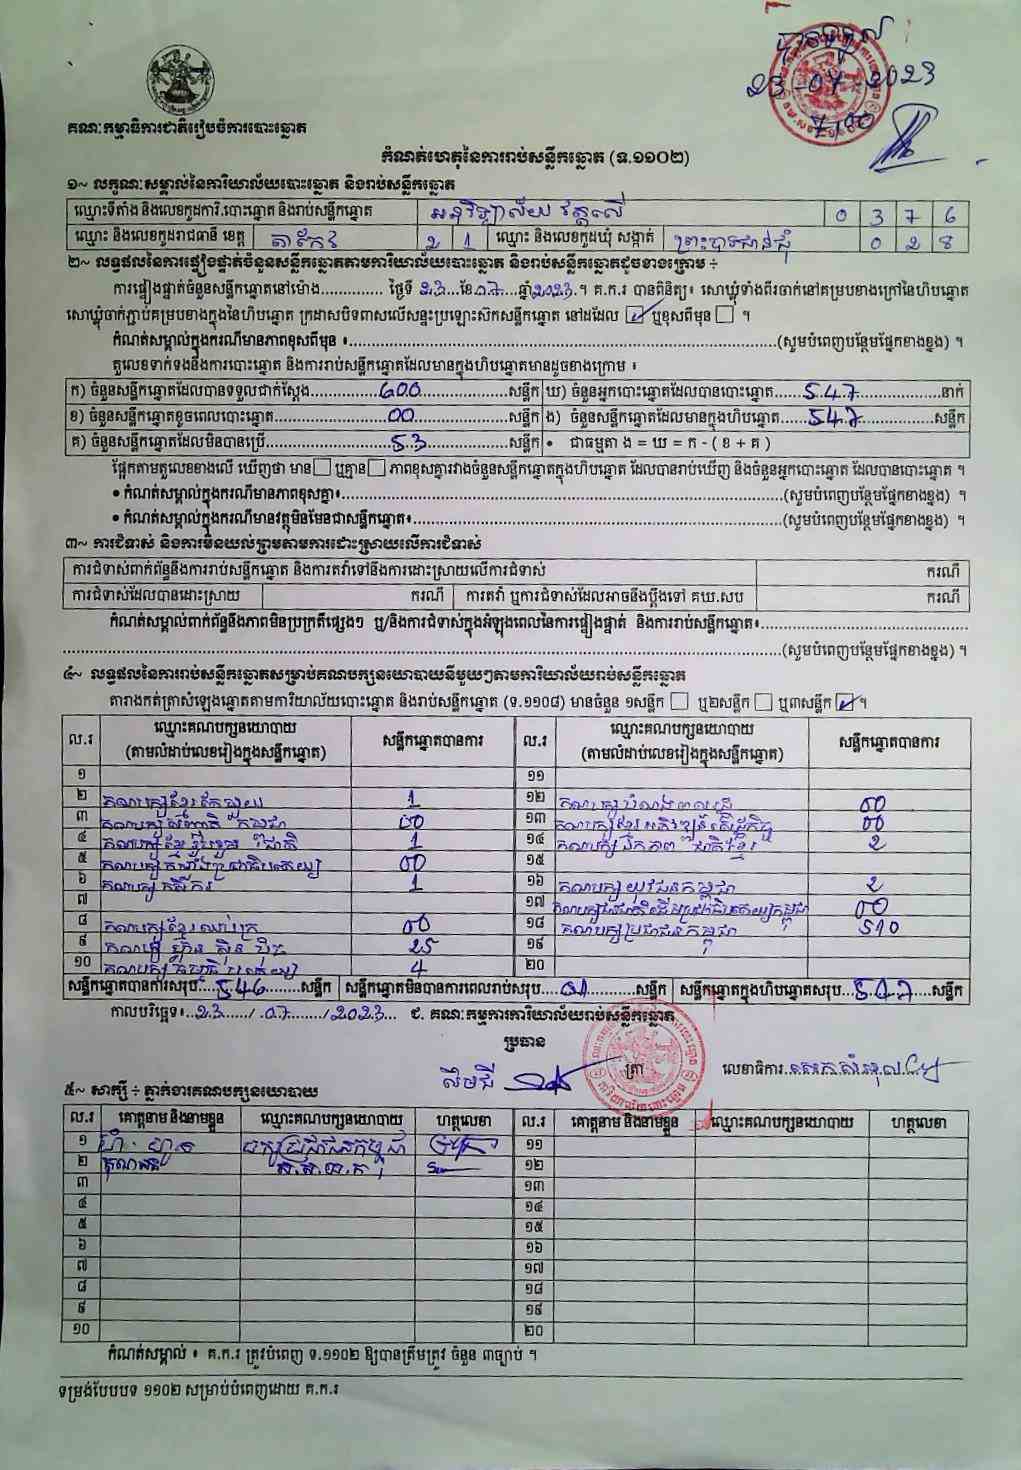 បានទទួល
23-07-2023
គណៈកម្មាធិការជាតិរៀបចំការបោះឆ្នោត
កំណត់ហេតុនៃការរាប់សន្លឹកឆ្នោត (ទ.១១០២)
១~ លក្ខណៈសម្គាល់នៃការិយាល័យបោះឆ្នោត និងរាប់សន្លឹកឆ្នោត
ឈ្មោះទីតាំង និងលេខកូដការិ.បោះឆ្នោត និងរាប់សន្លឹកឆ្នោត អនុវិទ្យាល័យ វត្តលើ 0 3 7 6
ឈ្មោះ និងលេខកូដរាជធានី ខេត្ត តាកែវ 2 1 ឈ្មោះ និងលេខកូដឃុំ សង្កាត់ ព្រះបាទជាន់ជុំ 0 2 8
២~ លទ្ធផលនៃការផ្ទៀងផ្ទាត់ចំនួនសន្លឹកឆ្នោតតាមការិយាល័យបោះឆ្នោត និងរាប់សន្លឹកឆ្នោតដូចខាងក្រោម ÷
ការផ្ទៀងផ្ទាត់ចំនួនសន្លឹកឆ្នោតនៅម៉ោង.............. ថ្ងៃទី 23 ខែ 07 ឆ្នាំ 2023 ។ គ.ក.រ បានពិនិត្យ៖ សោឃ្លុំទាំងពីរចាក់នៅគម្របខាងក្រៅនៃហិបឆ្នោត
សោឃ្លុំចាក់ភ្ជាប់គម្របខាងក្នុងនៃហិបឆ្នោត ក្រដាសបិទពាសលើសន្ទះប្រឡោះស៊កសន្លឹកឆ្នោត នៅដដែល ☑ ឬខុសពីមុន ☐ ។
កំណត់សម្គាល់ក្នុងករណីមានភាពខុសពីមុន ៖........(សូមបំពេញបន្ថែមផ្នែកខាងខ្នង) ។
តួលេខទាក់ទងនឹងការបោះឆ្នោត និងការរាប់សន្លឹកឆ្នោតដែលមានក្នុងហិបឆ្នោតមានដូចខាងក្រោម ៖
ក) ចំនួនសន្លឹកឆ្នោតដែលបានទទួលជាក់ស្តែង 600 សន្លឹក ឃ) ចំនួនអ្នកបោះឆ្នោតដែលបានបោះឆ្នោត 547 នាក់
ខ) ចំនួនសន្លឹកឆ្នោតខូចពេលបោះឆ្នោត 00 សន្លឹក ង) ចំនួនសន្លឹកឆ្នោតដែលមានក្នុងហិបឆ្នោត 547 សន្លឹក
គ) ចំនួនសន្លឹកឆ្នោតដែលមិនបានប្រើ 53 សន្លឹក • ជាធម្មតា ង = ឃ = ក - ( ខ + គ )
ផ្អែកតាមតួលេខខាងលើ ឃើញថា មាន ☐ ឬគ្មាន ☐ ភាពខុសគ្នារវាងចំនួនសន្លឹកឆ្នោតក្នុងហិបឆ្នោត ដែលបានរាប់ឃើញ និងចំនួនអ្នកបោះឆ្នោត ដែលបានបោះឆ្នោត ។
• កំណត់សម្គាល់ក្នុងករណីមានភាពខុសគ្នា៖........(សូមបំពេញបន្ថែមផ្នែកខាងខ្នង) ។
• កំណត់សម្គាល់ក្នុងករណីមានវត្ថុមិនមែនជាសន្លឹកឆ្នោត៖........(សូមបំពេញបន្ថែមផ្នែកខាងខ្នង) ។
៣~ ការជំទាស់ និងការមិនយល់ព្រមតាមការដោះស្រាយលើការជំទាស់
ការជំទាស់ពាក់ព័ន្ធនឹងការរាប់សន្លឹកឆ្នោត និងការតវ៉ាទៅនឹងការដោះស្រាយលើការជំទាស់ ករណី
ការជំទាស់ដែលបានដោះស្រាយ ករណី ការតវ៉ា ឬការជំទាស់ដែលអាចនឹងប្តឹងទៅ គឃ.សប ករណី
កំណត់សម្គាល់ពាក់ព័ន្ធនឹងភាពមិនប្រក្រតីផ្សេងៗ ឬ/និងការជំទាស់ក្នុងអំឡុងពេលនៃការផ្ទៀងផ្ទាត់ និងការរាប់សន្លឹកឆ្នោត៖........
........(សូមបំពេញបន្ថែមផ្នែកខាងខ្នង) ។
៤~ លទ្ធផលនៃការរាប់សន្លឹកឆ្នោតសម្រាប់គណបក្សនយោបាយនីមួយៗតាមការិយាល័យរាប់សន្លឹកឆ្នោត
តារាងកត់ត្រាសំឡេងឆ្នោតតាមការិយាល័យបោះឆ្នោត និងរាប់សន្លឹកឆ្នោត (ទ.១១០៨) មានចំនួន ១សន្លឹក ☐ ឬ២សន្លឹក ☐ ឬ៣សន្លឹក ☑ ។
ល.រ ឈ្មោះគណបក្សនយោបាយ (តាមលំដាប់លេខរៀងក្នុងសន្លឹកឆ្នោត) សន្លឹកឆ្នោតបានការ ល.រ ឈ្មោះគណបក្សនយោបាយ (តាមលំដាប់លេខរៀងក្នុងសន្លឹកឆ្នោត) សន្លឹកឆ្នោតបានការ
១ ១១
២ គណបក្សខ្មែរតែមួយ 1 ១២ គណបក្ស 00
៣ គណបក្ស សញ្ជាតិ កម្ពុជា 00 ១៣ គណបក្សខ្មែរអភិវឌ្ឍន៍សេដ្ឋកិច្ច 00
៤ គណបក្សខ្មែររួបរួមជាតិ 1 ១៤ គណបក្ស ឯកភាព ជាតិខ្មែរ 2
៥ គណបក្សកម្លាំងប្រជាធិបតេយ្យ 00 ១៥
៦ គណបក្ស កសិករ 1 ១៦ គណបក្សយុវជនកម្ពុជា 2
៧ ១៧ 00
៨ គណបក្សខ្មែរឈប់ក្រ 00 ១៨ គណបក្សប្រជាជនកម្ពុជា 510
៩ ហ្វ៊ុនស៊ិនប៉ិច 25 ១៩
១០ គណបក្ស ធម្មាធិបតេយ្យ 4 ២០
សន្លឹកឆ្នោតបានការសរុប 546 សន្លឹក សន្លឹកឆ្នោតមិនបានការពេលរាប់សរុប 01 សន្លឹក សន្លឹកឆ្នោតក្នុងហិបឆ្នោតសរុប 547 សន្លឹក
កាលបរិច្ឆេទ៖ 23 / 07 / 2023 ជ. គណៈកម្មការការិយាល័យរាប់សន្លឹកឆ្នោត
ប្រធាន
ត្រា លេខាធិការ
៥~ សាក្សី ÷ ភ្នាក់ងារគណបក្សនយោបាយ
ល.រ គោត្តនាម និងនាមខ្លួន ឈ្មោះគណបក្សនយោបាយ ហត្ថលេខា ល.រ គោត្តនាម និងនាមខ្លួន ឈ្មោះគណបក្សនយោបាយ ហត្ថលេខា
១ បក្សប្រជាជនកម្ពុជា ១១
២ ១២
៣ ១៣
៤ ១៤
៥ ១៥
៦ ១៦
៧ ១៧
៨ ១៨
៩ ១៩
១០ ២០
កំណត់សម្គាល់ ៖ គ.ក.រ ត្រូវបំពេញ ទ.១១០២ ឱ្យបានត្រឹមត្រូវ ចំនួន ៣ច្បាប់ ។
ទម្រង់បែបបទ ១១០២ សម្រាប់បំពេញដោយ គ.ក.រ